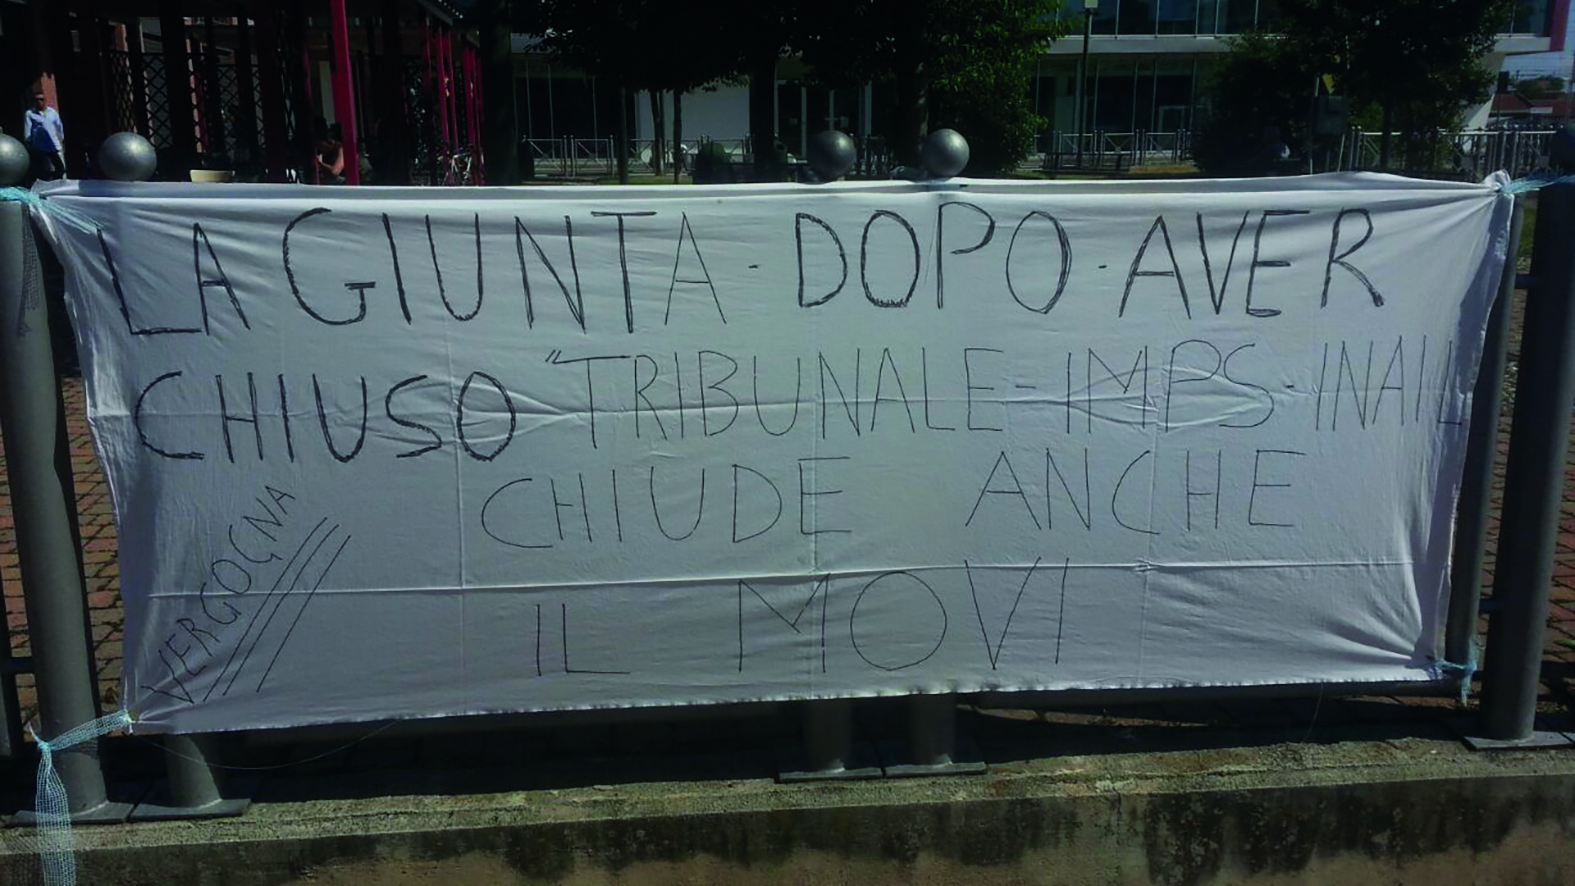 LA GIUNTA - DOPO - AVER
CHIUSO "TRIBUNALE - IMPS - INAIL
CHIUDE ANCHE
IL MOVI
VERGOGNA